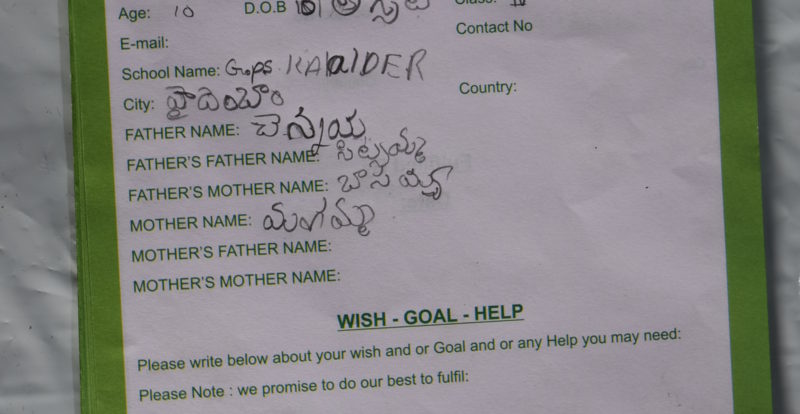 Age: 10 D.O.B Class: IV
E-mail: Contact No
School Name: G.ps KAIDER
City: Country:
FATHER NAME: చెన్నయ
FATHER'S FATHER NAME:
FATHER'S MOTHER NAME:
MOTHER NAME: మగమ్మ
MOTHER'S FATHER NAME:
MOTHER'S MOTHER NAME:
WISH - GOAL - HELP
Please write below about your wish and or Goal and or any Help you may need:
Please Note : we promise to do our best to fulfil: